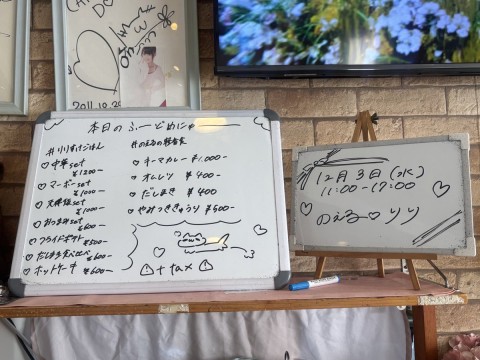 2011.10.20
本日のふーどめにゅー
#りりすごはん
♡中華set
¥1200-
♡マーボーset
¥1000-
¥1000-
♡おつまみset
¥600-
♡フライドポテト
¥500-
♡だしまき食べ比べ
¥600-
♡ホットケーキ ¥600-
#のえるの軽食家
♡キーマカレー ¥1.000-
♡オムレツ ¥400
♡だしまき ¥400
♡やみつききゅうり ¥500-
⚠+tax⚠
12月3日(水)
11:00-17:00
のえる♡りり